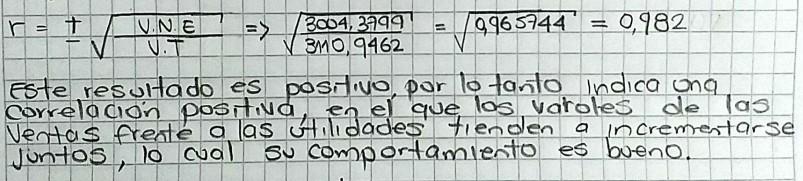 r = ± √(V.N.E / V.T) => √(3004,3799 / 3110,9462) = √0,965744 = 0,982
Este resultado es positivo, por lo tanto indica una
correlación positiva, en el que los varoles de las
Ventas frente a las utilidades tienden a incrementarse
juntos, lo cual su comportamiento es bueno.